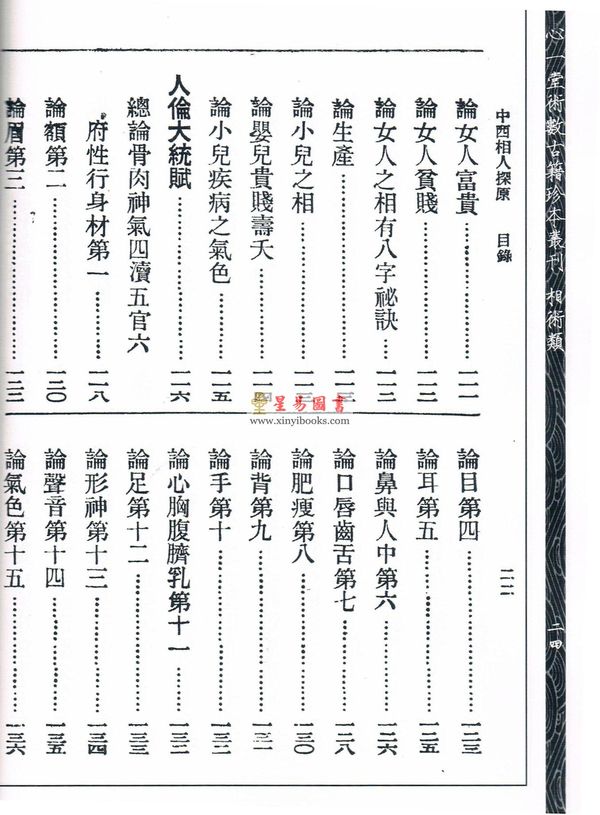 心一堂術數古籍珍本叢刊 相術類 二四
中西相人探原 目錄 二二
論女人富貴……一一一
論女人貧賤……一一二
論女人之相有八字祕訣……一一二
論生產……一一三
論小兒之相……一一三
論嬰兒貴賤壽夭……一一四
論小兒疾病之氣色……一一五
人倫大統賦……一一六
總論骨肉神氣四瀆五官六
府性行身材第一……一一八
論額第二……一二〇
論眉第三……一二二
論目第四……一二三
論耳第五……一二五
論鼻與人中第六……一二六
論口唇齒舌第七……一二八
論肥瘦第八……一三〇
論背第九……一三一
論手第十……一三二
論心胸腹臍乳第十一……一三二
論足第十二……一三三
論形神第十三……一三四
論聲音第十四……一三五
論氣色第十五……一三六
星易圖書
www.xinyibooks.com